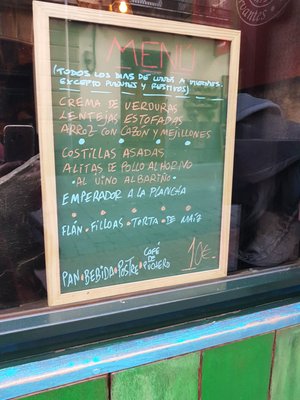 MENÚ
(TODOS LOS DIAS DE LUNES A VIERNES.
EXCEPTO PUENTES Y FESTIVOS)
CREMA DE VERDURAS
LENTEJAS ESTOFADAS
ARROZ CON CAZÓN Y MEJILLONES
COSTILLAS ASADAS
ALITAS DE POLLO AL HORNO
·AL VINO ALBARIÑO·
EMPERADOR A LA PLANCHA
FLÁN·FILLOAS·TORTA·DE MAÍZ
PAN·BEBIDA·POSTRE·CAFÉ DE PUCHERO
10€.